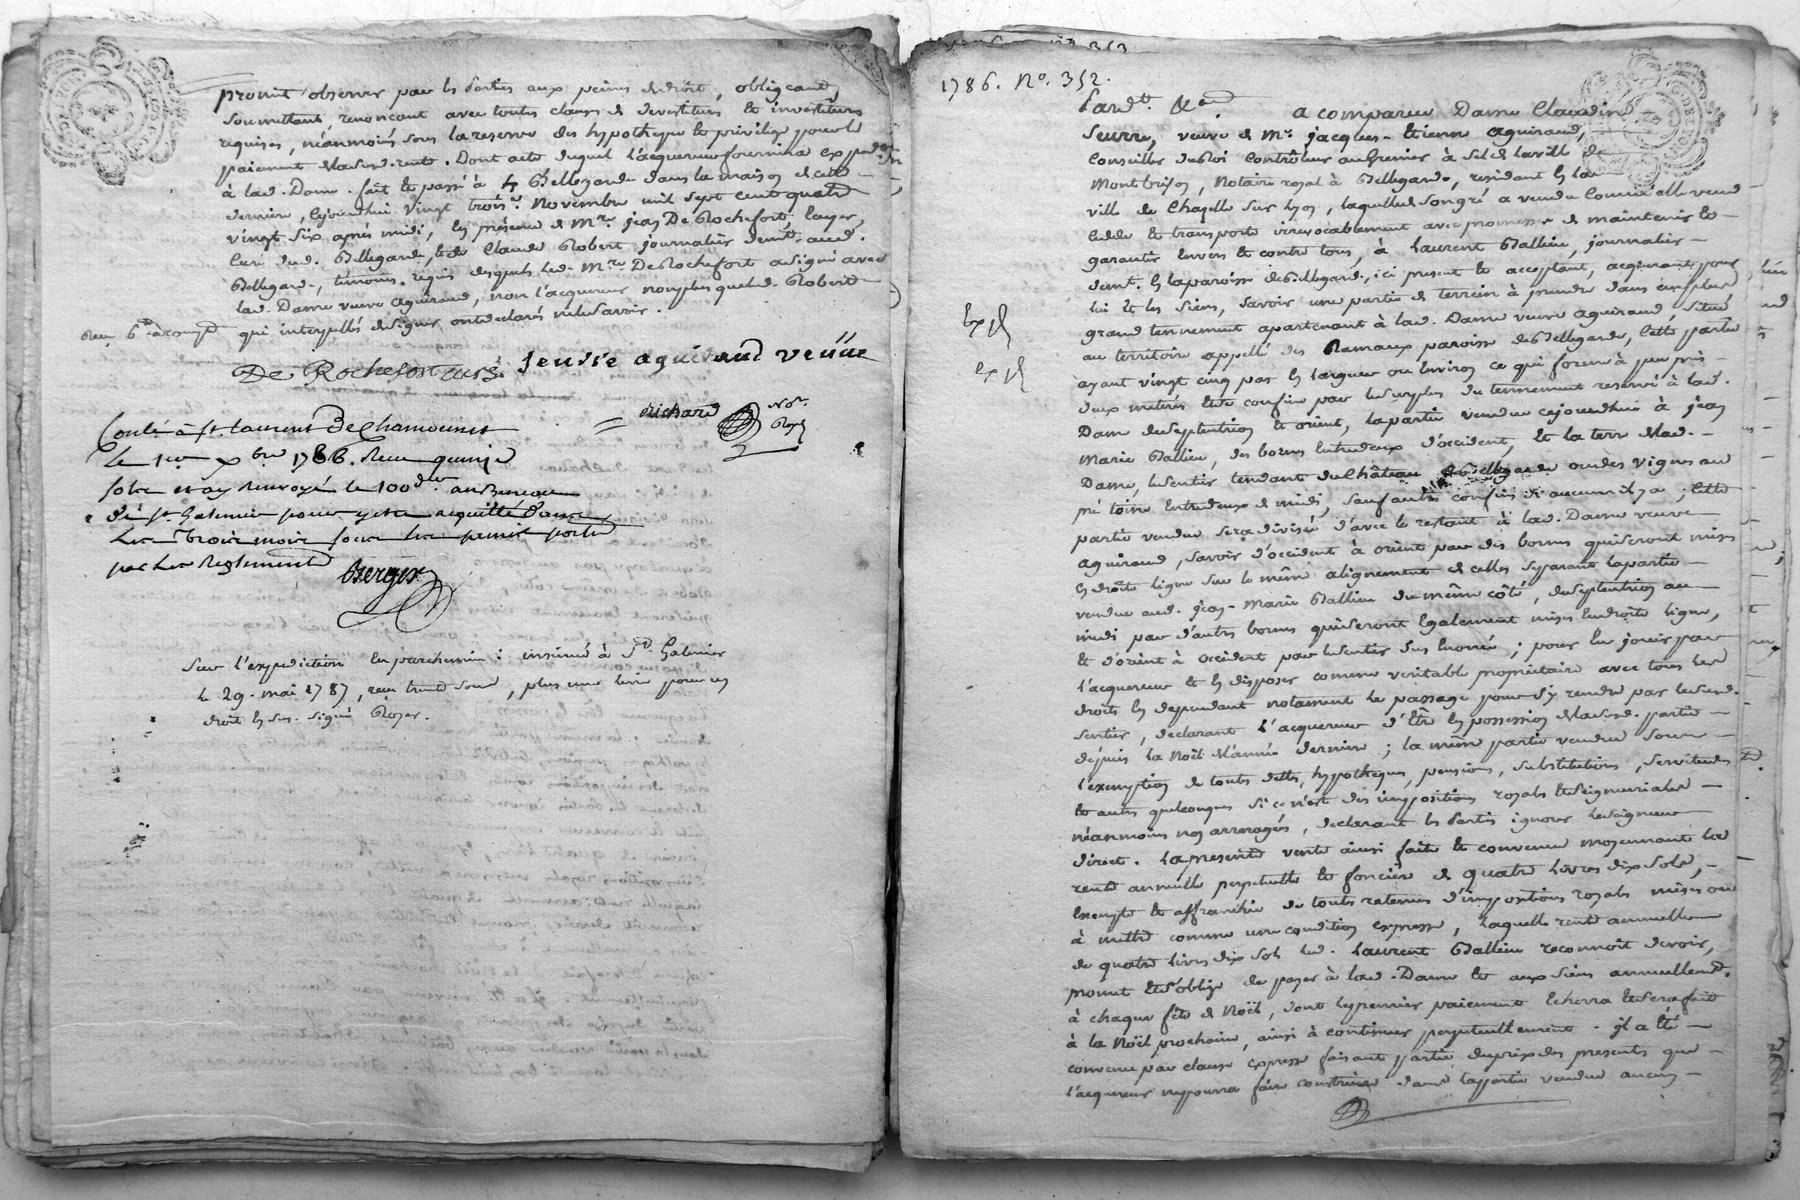 promit observer par les parties aux peines de droit, obligeant,
soumettant, renoncant avec toutes clauses de devestiture et investiture
requises, néanmoins sous la reserve des hypotheque et privilege pour le
paiement de la susd. rente. Dont acte duquel l'acquereur fournira
à lad. Dame. fait et passé à Bellegarde dans la maison de cette
derniere, cejourdhui vingt trois.e Novembre mil sept cent quatre
vingt six après midi, en présence de M.re jean De Rochefort,
curé dud. Bellegarde, et de Claude Robert journalier demt. aud.
Bellegarde, temoins requis desquels led. M.re De Rochefort a signé avec
lad. Dame veuve aguiraud, non l'acquereur non plus que led. Robert
qui interpellés de signer ont declarés ne le savoir.
De Rochefort curé. Seurre aguiraud veuve
Richard No.re Royal
Contlé à st. laurent de Chamousset
Le 1er xbre 1786. Reçu quinze
sols et ay renvoyé le 100.dre au Bureau
de st. Galmier pour y etre acquitté dans
les trois mois sous les peines portées
par les Reglements Berger
Sur l'expedition en parchemin : insinué à St. Galmier
le 29. mai 1787, reçu trente sous, plus une livre pour
droit en sus. signé Royer.
1786. No. 352.
Pardt. &a a comparu Dame Claudine
Seurre, veuve de Mr. jacques-Etienne aguiraud,
Conseiller du Roi Contrôleur au Grenier à Sel de la ville de
Montbrison, Notaire royal à Bellegarde, residant en la
ville de Chazelle sur Lyon, laquelle de son gré a vendu comme elle vend
cedde et transporte irrevocablement avec promesse de maintenir et
garantir envers et contre tous, à Laurent Ballieu, journalier
demt. en la paroisse de Bellegarde, ici present et acceptant, acquerant pour
lui et les siens, savoir une partie de terrein à prendre dans un plus
grand tennement apartenant à lad. Dame veuve aguiraud, situé
au territoire appellé des Rameaux paroisse de Bellegarde, cette partie
ayant vingt cinq pas en largeur ou environ ce qui forme à peu près
deux meterés et se confine par le surplus du tennement reservé à lad.
Dame du septentrion et orient, la partie vendue cejourdhui à jean
Marie Ballieu, des bornes entredeux d'occident, et la terre de lad.
Dame, le sentier tendant du Château de Bellegarde ou des vignes au
pré toine entredeux de midi, sauf autres confins si aucuns il y a ; cette
partie vendue sera divisée d'avec le restant à lad. Dame veuve
aguiraud, savoir d'occident à orient par des bornes qui seront mises
en droite ligne sur le même alignement de celles separant la partie
vendue aud. jean-Marie Ballieu du même côté, du septentrion au
midi par d'autres bornes qui seront également mises en droite ligne,
et d'orient à occident par le sentier sus énoncé ; pour en jouir par
l'acquereur et en disposer comme veritable propriétaire avec tous les
droits en dependant notament le passage pour s'y rendre par le susd.
sentier, declarant l'acquereur d'être en possession de la susd. partie
depuis la Noël de l'année derniere ; la même partie vendue sous
l'exemption de toutes dettes, hypotheques, pensions, substitutions, servitudes
et autres quelconques si ce n'est des impositions royales et seigneuriales
néanmoins non arreragés, declarant les parties ignorer le seigneur
direct. La presente vente ainsi faite et convenue moyennant la
rente annuelle perpetuelle et fonciere de quatre livres dix sols,
exempte et affranchie de toutes retenues d'impositions royales mises ou
à mettre comme une condition expresse, laquelle rente annuelle
de quatre livres dix sols led. Laurent Ballieu reconnoit devoir,
promet et s'oblige de payer à lad. Dame et aux siens annuellemt.
à chaque fête de Noël, dont le premier paiement echerra et sera fait
à la Noël prochaine, ainsi à continuer perpetuellement. il a été
convenu par clause expresse faisant partie du prix des presentes que
l'acquereur ne pourra faire construire dans la partie vendue aucun